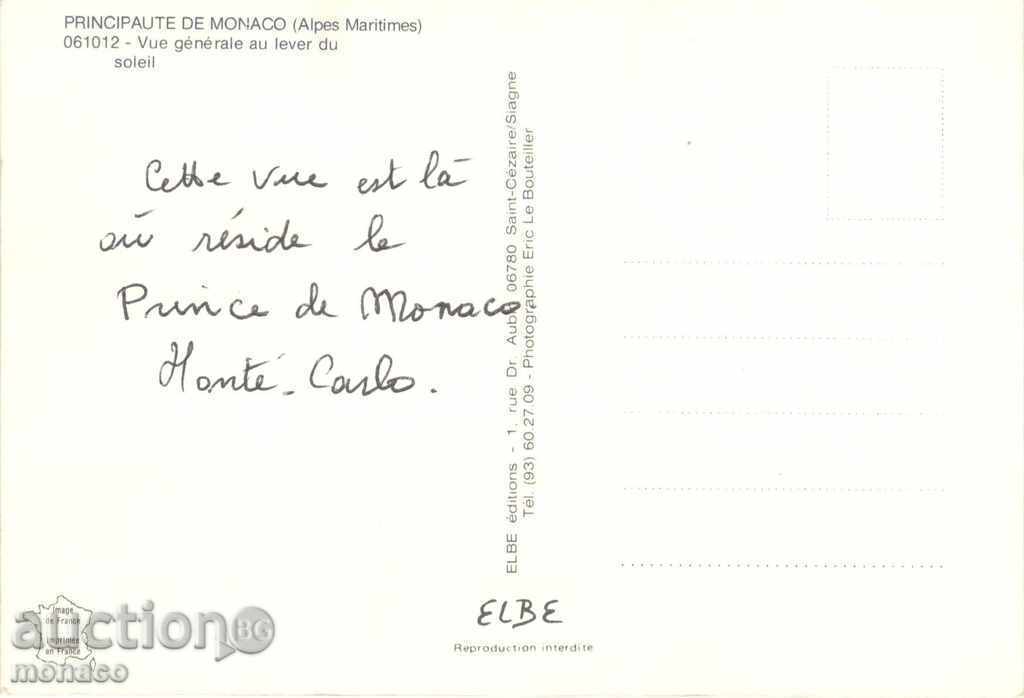 PRINCIPAUTE DE MONACO (Alpes Maritimes)
061012 - Vue générale au lever du
soleil
Cette vue est là
où réside le
Prince de Monaco
Monté-Carlo.
ELBE éditions - 1, rue Dr. Aubry 06780 Saint-Cézaire/Siagne
Tél. (93) 60.27.09 - Photographie Eric Le Bouteiller
ELBE
Reproduction interdite
Image
de France
Imprimée
en France
auction BG
monaco